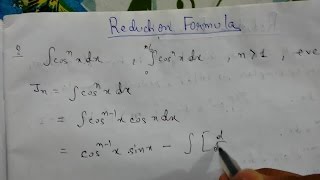 Reduction Formula
Q ∫cosⁿx dx, ∫₀ cosⁿx dx, n>1, eve
Jₙ = ∫cosⁿx dx
= ∫cosⁿ⁻¹x cosx dx
= cosⁿ⁻¹x sinx - ∫[ d/d